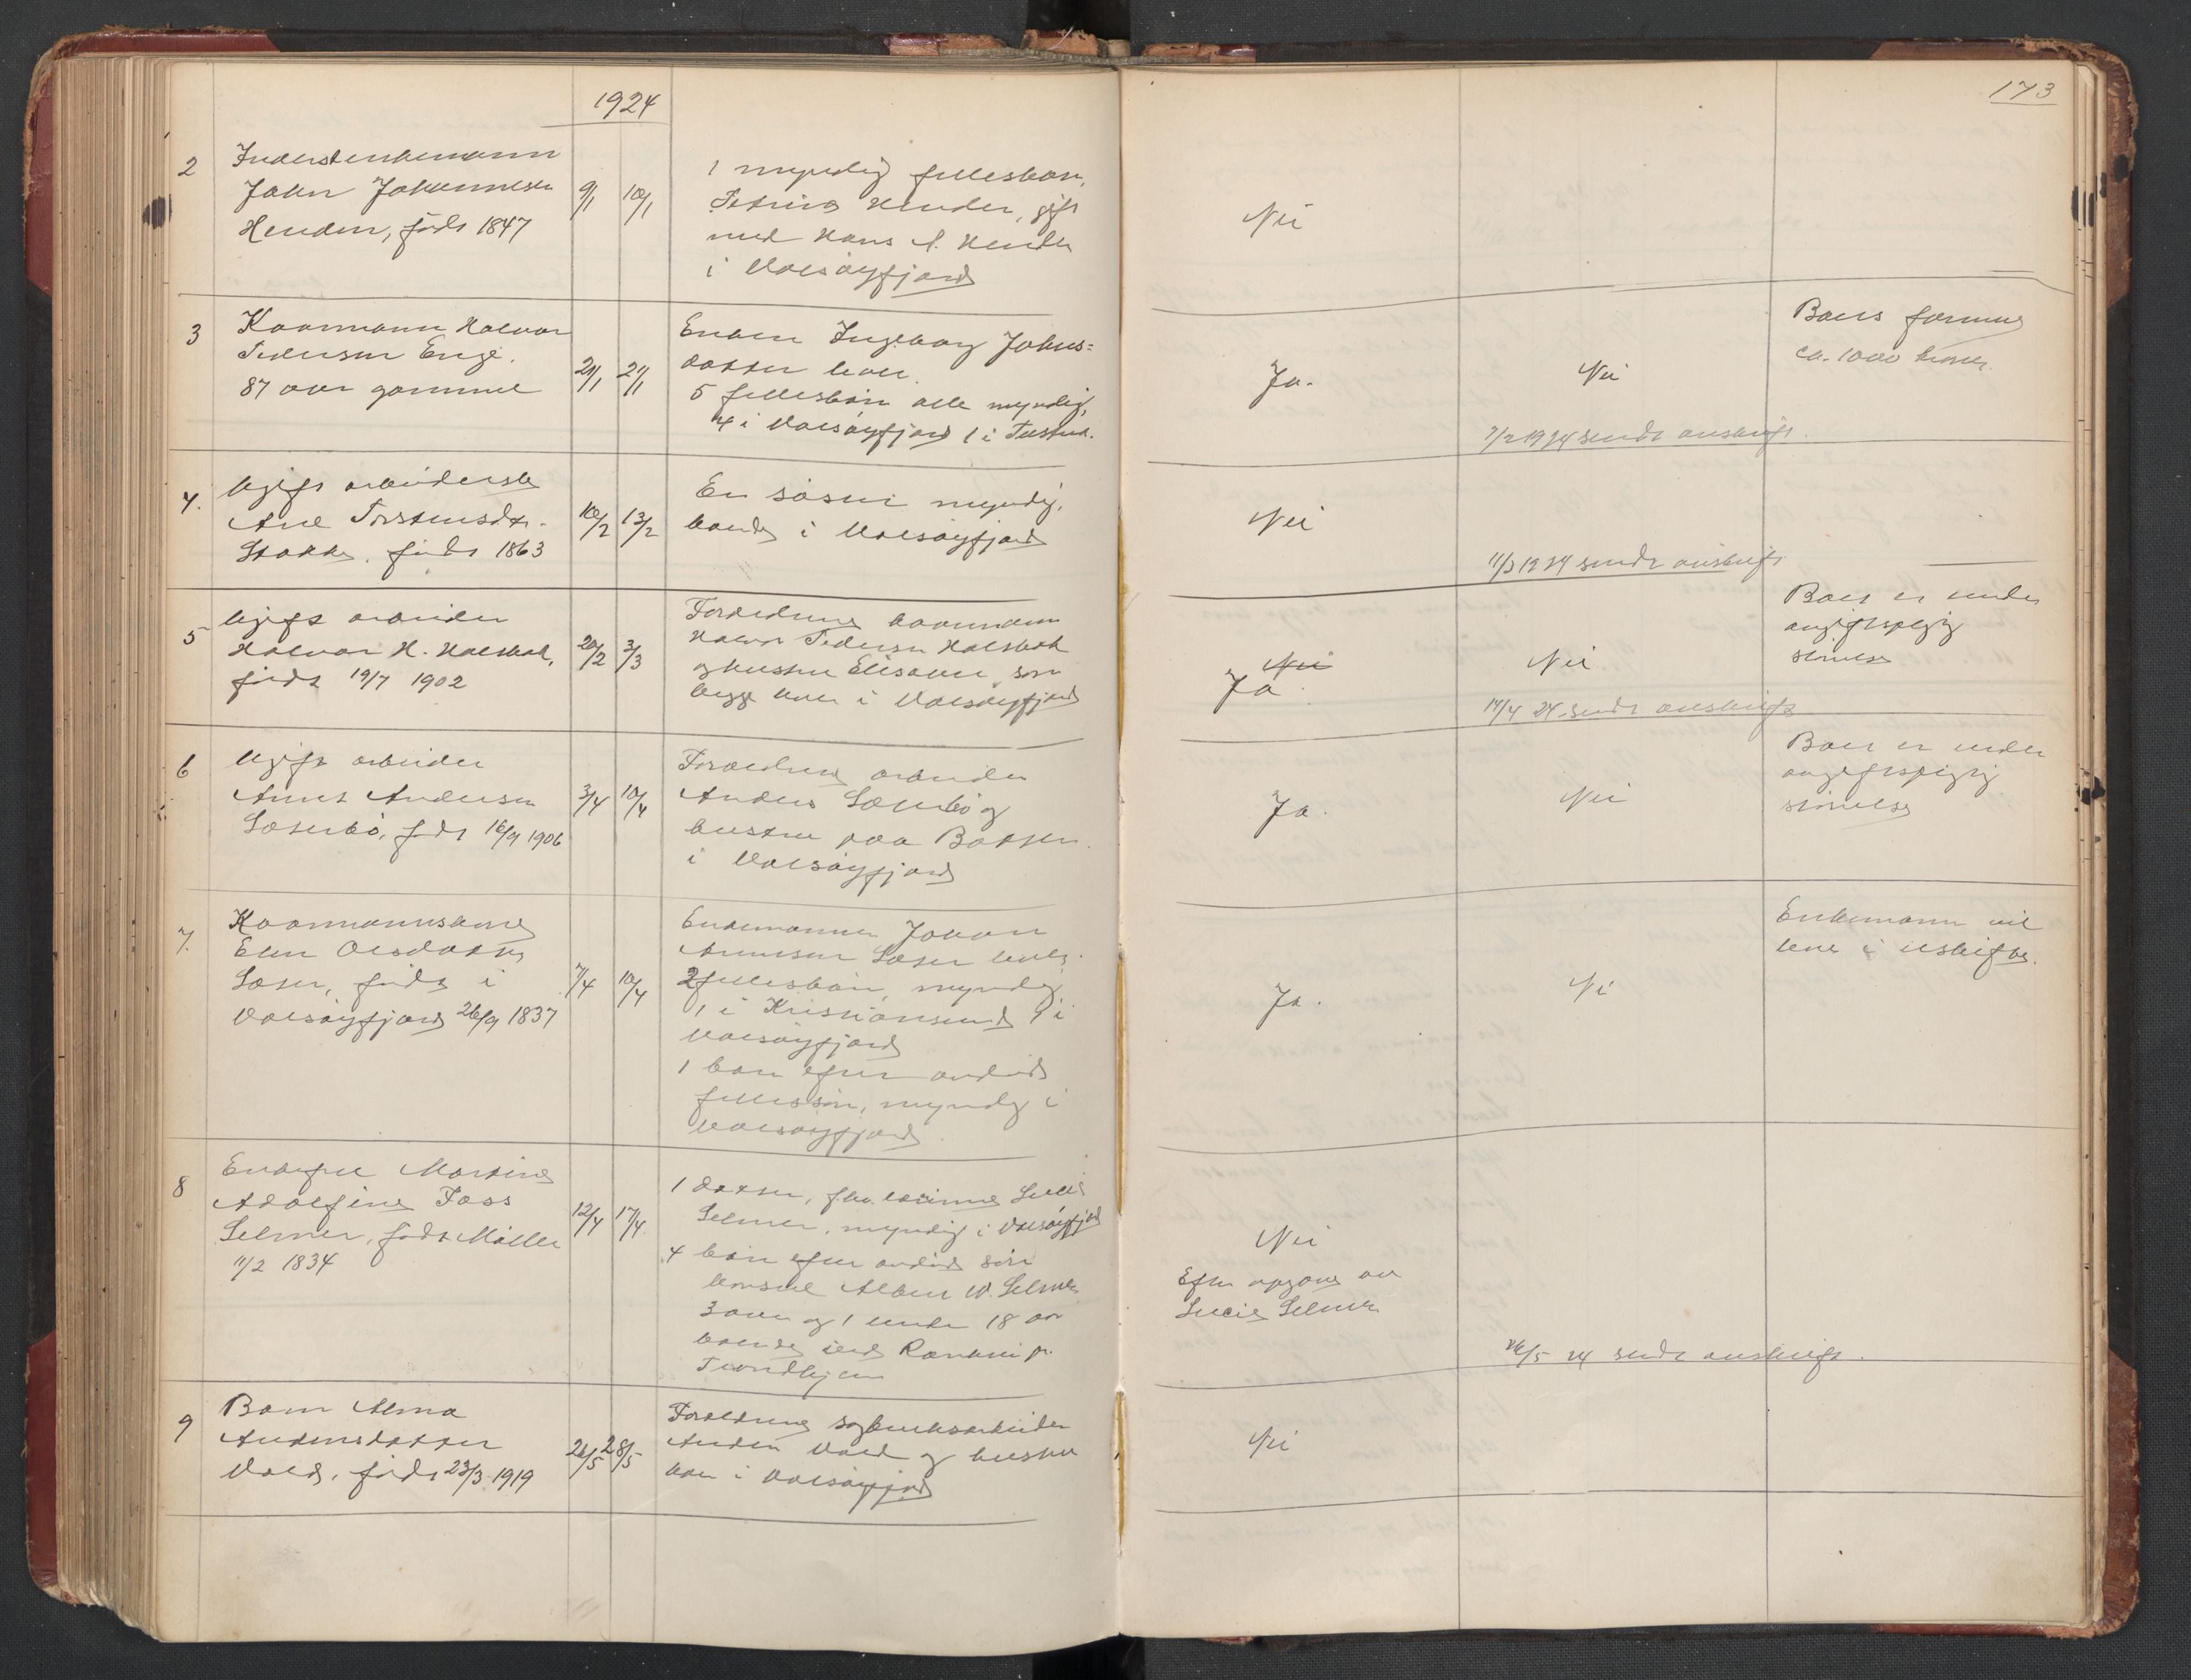 1924
173
2
Inderstenkemann
John Johannesen
Henden, födt 1847
9/1
10/1
1 myndig fellesbarn,
Petrine Henden, gift
med Hans A. Henden
i Valsöyfjord
Nei
3
Kaarmann Halvor
Pedersen Enge.
87 aar gammel
21/1
Enken Ingeborg Johns=
datter lever.
5 fellesbörn alle myndig,
4 i Valsöyfjord 1 i Tustna.
Ja.
Nei
7/2 1924 sendt anskrift.
Boets formue
ca. 1000 kroner.
4.
Ugift arbeiderske
Ane Torstensdtr.
Stokke, födt 1863
10/2
13/2
En söster myndig,
boende i Valsöyfjord
Nei
11/3 1924 sendt anskrift
5
Ugift arbeider
Halvor H. Halsbak,
födt 19/7 1902
20/2
3/3
Foreldrene kaarmann
Halvor Pedersen Halsbak
og hustru Elisabet, som
begge bor i Valsöyfjord
Nei
Ja.
Nei
14/4 24. sendt anskrift
Boet er under
avgiftspligtig
störrelse
6
Ugift arbeider
Anders Andersen
Sæterbö, födt 16/9 1906
3/4
10/4
Foreldrene arbeider
Anders Sæterbö og
hustru paa Botten
i Valsöyfjord
Ja.
Nei
Boet er under
avgiftspligtig
störrelse
7.
Kaarmannskone
Elen Olsdatter
Sæter, födt i
Valsöyfjord 26/9 1837
7/4
10/4
Enkemannen Johan
Arntsen Sæter lever.
2 fellesbörn, myndig
1 i Kristiansund 1 i
Valsöyfjord
1 barn efter avdöd
fellessön, myndig i
Valsöyfjord
Ja.
Nei
Enkemann vil
leve i uskiftet.
8
Enkefru Martine
Adolfine Foss
Selmer, födt Möller
11/2 1834
12/4
17/4
1 datter, frk. lærerinne Lucie
Selmer, myndig i Valsöyfjord
4 börn efter avdöd sön
konsul Albert W. Selmer
3 over og 1 under 18 aar
boende ved Ranheim pr.
Trondhjem
Nei
Efter opgave av
Lucie Selmer
26/5 24 sendt anskrift.
9
Barn Alma
Andersdatter
Vold, födt 23/3 1919
26/5
28/5
Foreldrene sagbruksarbeider
Anders Vold og hustru
bor i Valsöyfjord
Nei